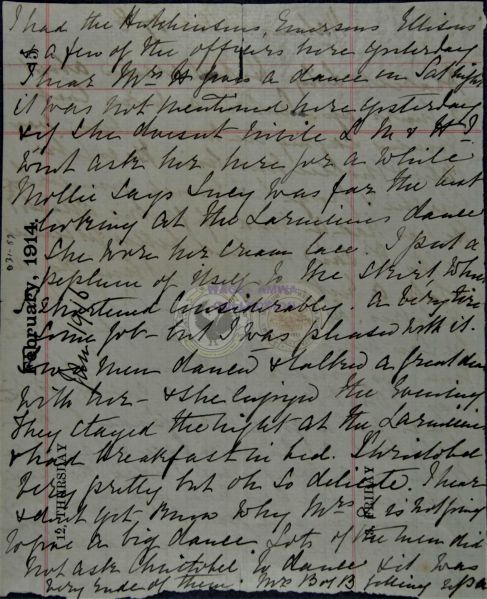 I had the Hutchinsons, Emersons Ellisons
& a few of the officers here yesterday
I hear Mrs H gives a dance on Sat night
it was not mentioned here yesterday
& if she doesn't invite L M & H I
wont ask her here for a while
Mollie says Lucy was far the best
looking at the dance
She wore her cream lace. I put a
peplum of itself to the skirt which
shortened considerably. A very tire
some job - but I was pleased with it.
men danced & talked a great deal
with her - & she enjoyed the evening
They stayed the night at the
& had breakfast in bed. Christobel
very pretty but oh so delicate. I hear
& don't yet know why Mrs is not going
to give a big dance. Lots of the men did
not ask Christobel to dance & it was
very rude of them. Mrs B of B filling up a
February, 1914.
12, THURSDAY
13, FRIDAY